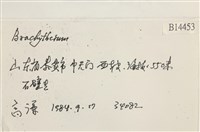 B14453
Brachytherum
山东省泰安市 中天门 西
石壁生
高谦 1984.9.17 34082